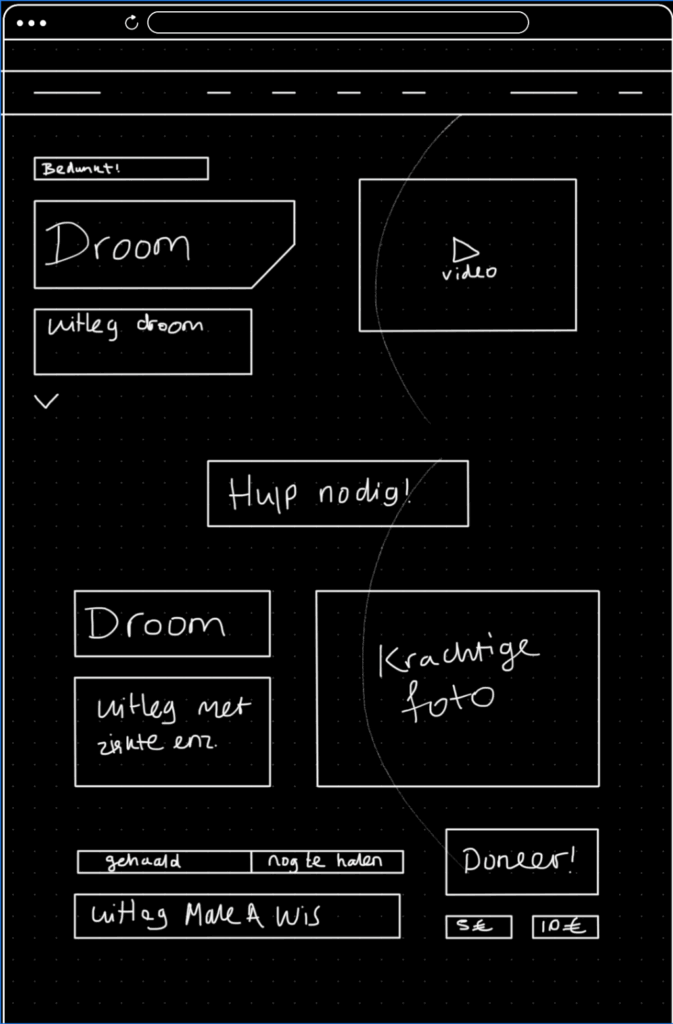 Bedankt!
Droom
video
uitleg droom
Hulp nodig!
Droom
Krachtige
foto
uitleg met
ziekte enz.
gehaald
nog te halen
Doneer!
uitleg Make A Wis
5€
10€